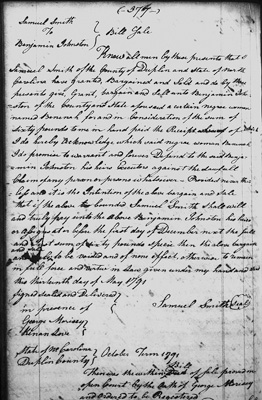 (374)
Samuel Smith
To } Bill Sale
Benjamin Johnston
Know all men by these presents that I
Samuel Smith of the County of Duplin and State of North
Carolina have Granted, Bargained and Sold and do by these
presents give, Grant, bargain and Sell unto Benjamin John-
ston of the County and State aforesaid a certain negro woman
named Hannah for and in Consideration of the Sum of
Sixty pounds to me in hand paid the Receipt whereof
I do hereby Acknowledge which said negro woman Hannah
I do promise to warrant and forever Defend to the said Benja-
min Johnston his heirs Executors against the lawfull
Claim of any person or persons whatsoever Provided never the
less and it is the Intention of the above bargain and Sale
that if the above bounded Samuel Smith Shall well
and truly pay unto the above Benjamin Johnston his heirs
or assigns at or before the first day of December next the full
and Just sum of Sixty pounds Specie then the above bargain
and Sale to be voided and of none effect, otherwise to remain
in full force and virtue in Law given under my hand and
this thirteenth day of May 1791
Signed Sealed and Delivered
in presence of } Samuel Smith (Seal)
George Morisey
Kinan Love
State of No Carolina } October Term 1791
Duplin County
Then was the within Bill of Sale proved in
open Court by the Oath of George Morisey
and Ordered to be Registered